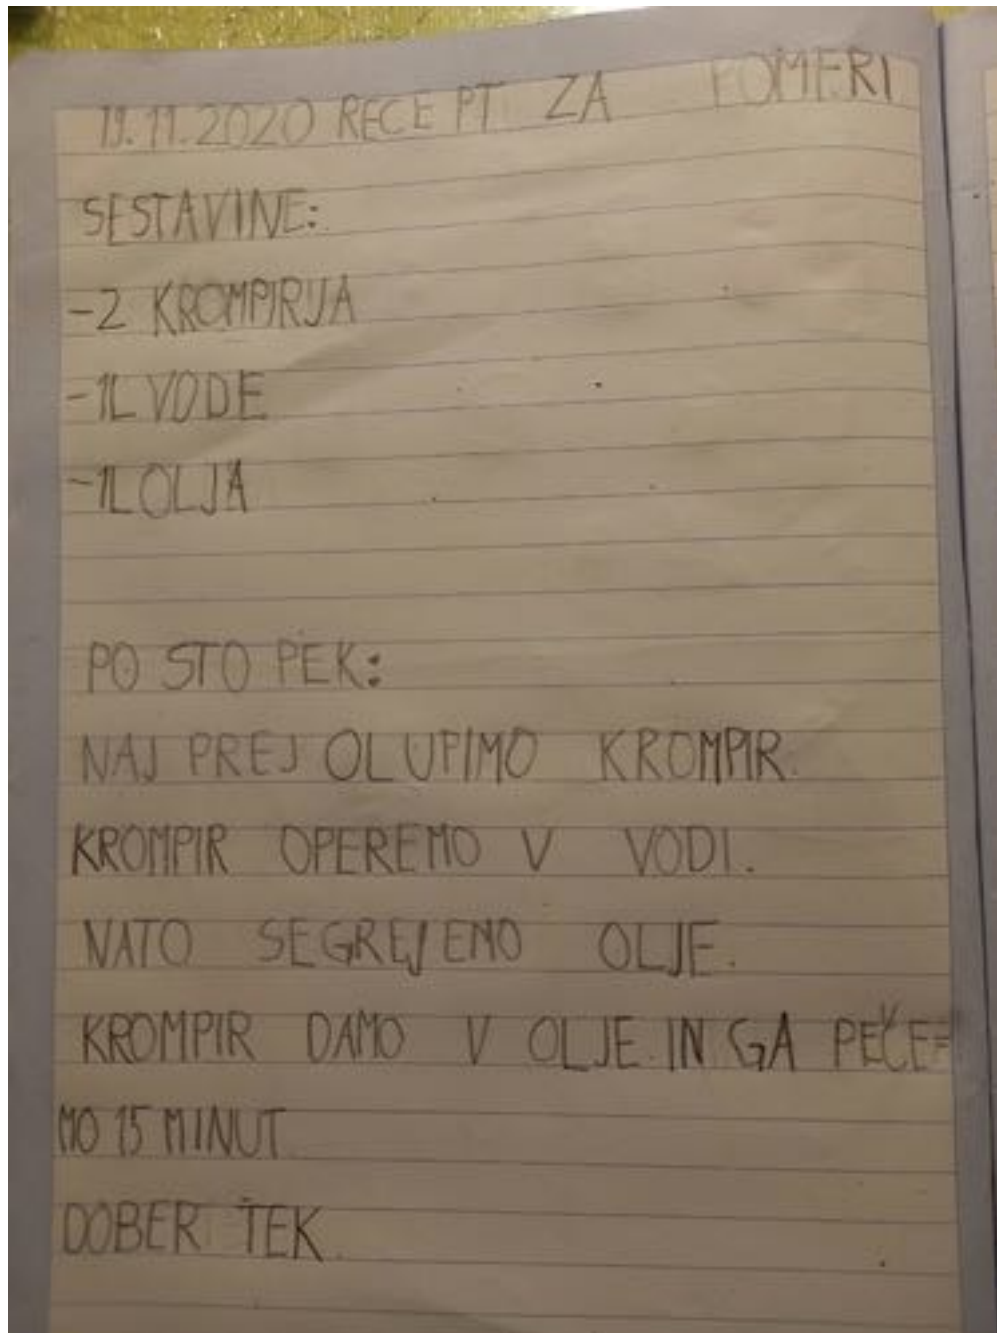 19.11.2020 RECEPT ZA POMFRI
SESTAVINE:
-2 KROMPIRJA
-1L VODE
-1L OLJA
PO STO PEK:
NAJ PREJ OLUPIMO KROMPIR.
KROMPIR OPEREMO V VODI.
NATO SEGREJEMO OLJE.
KROMPIR DAMO V OLJE IN GA PEČE=
MO 15 MINUT
DOBER TEK.